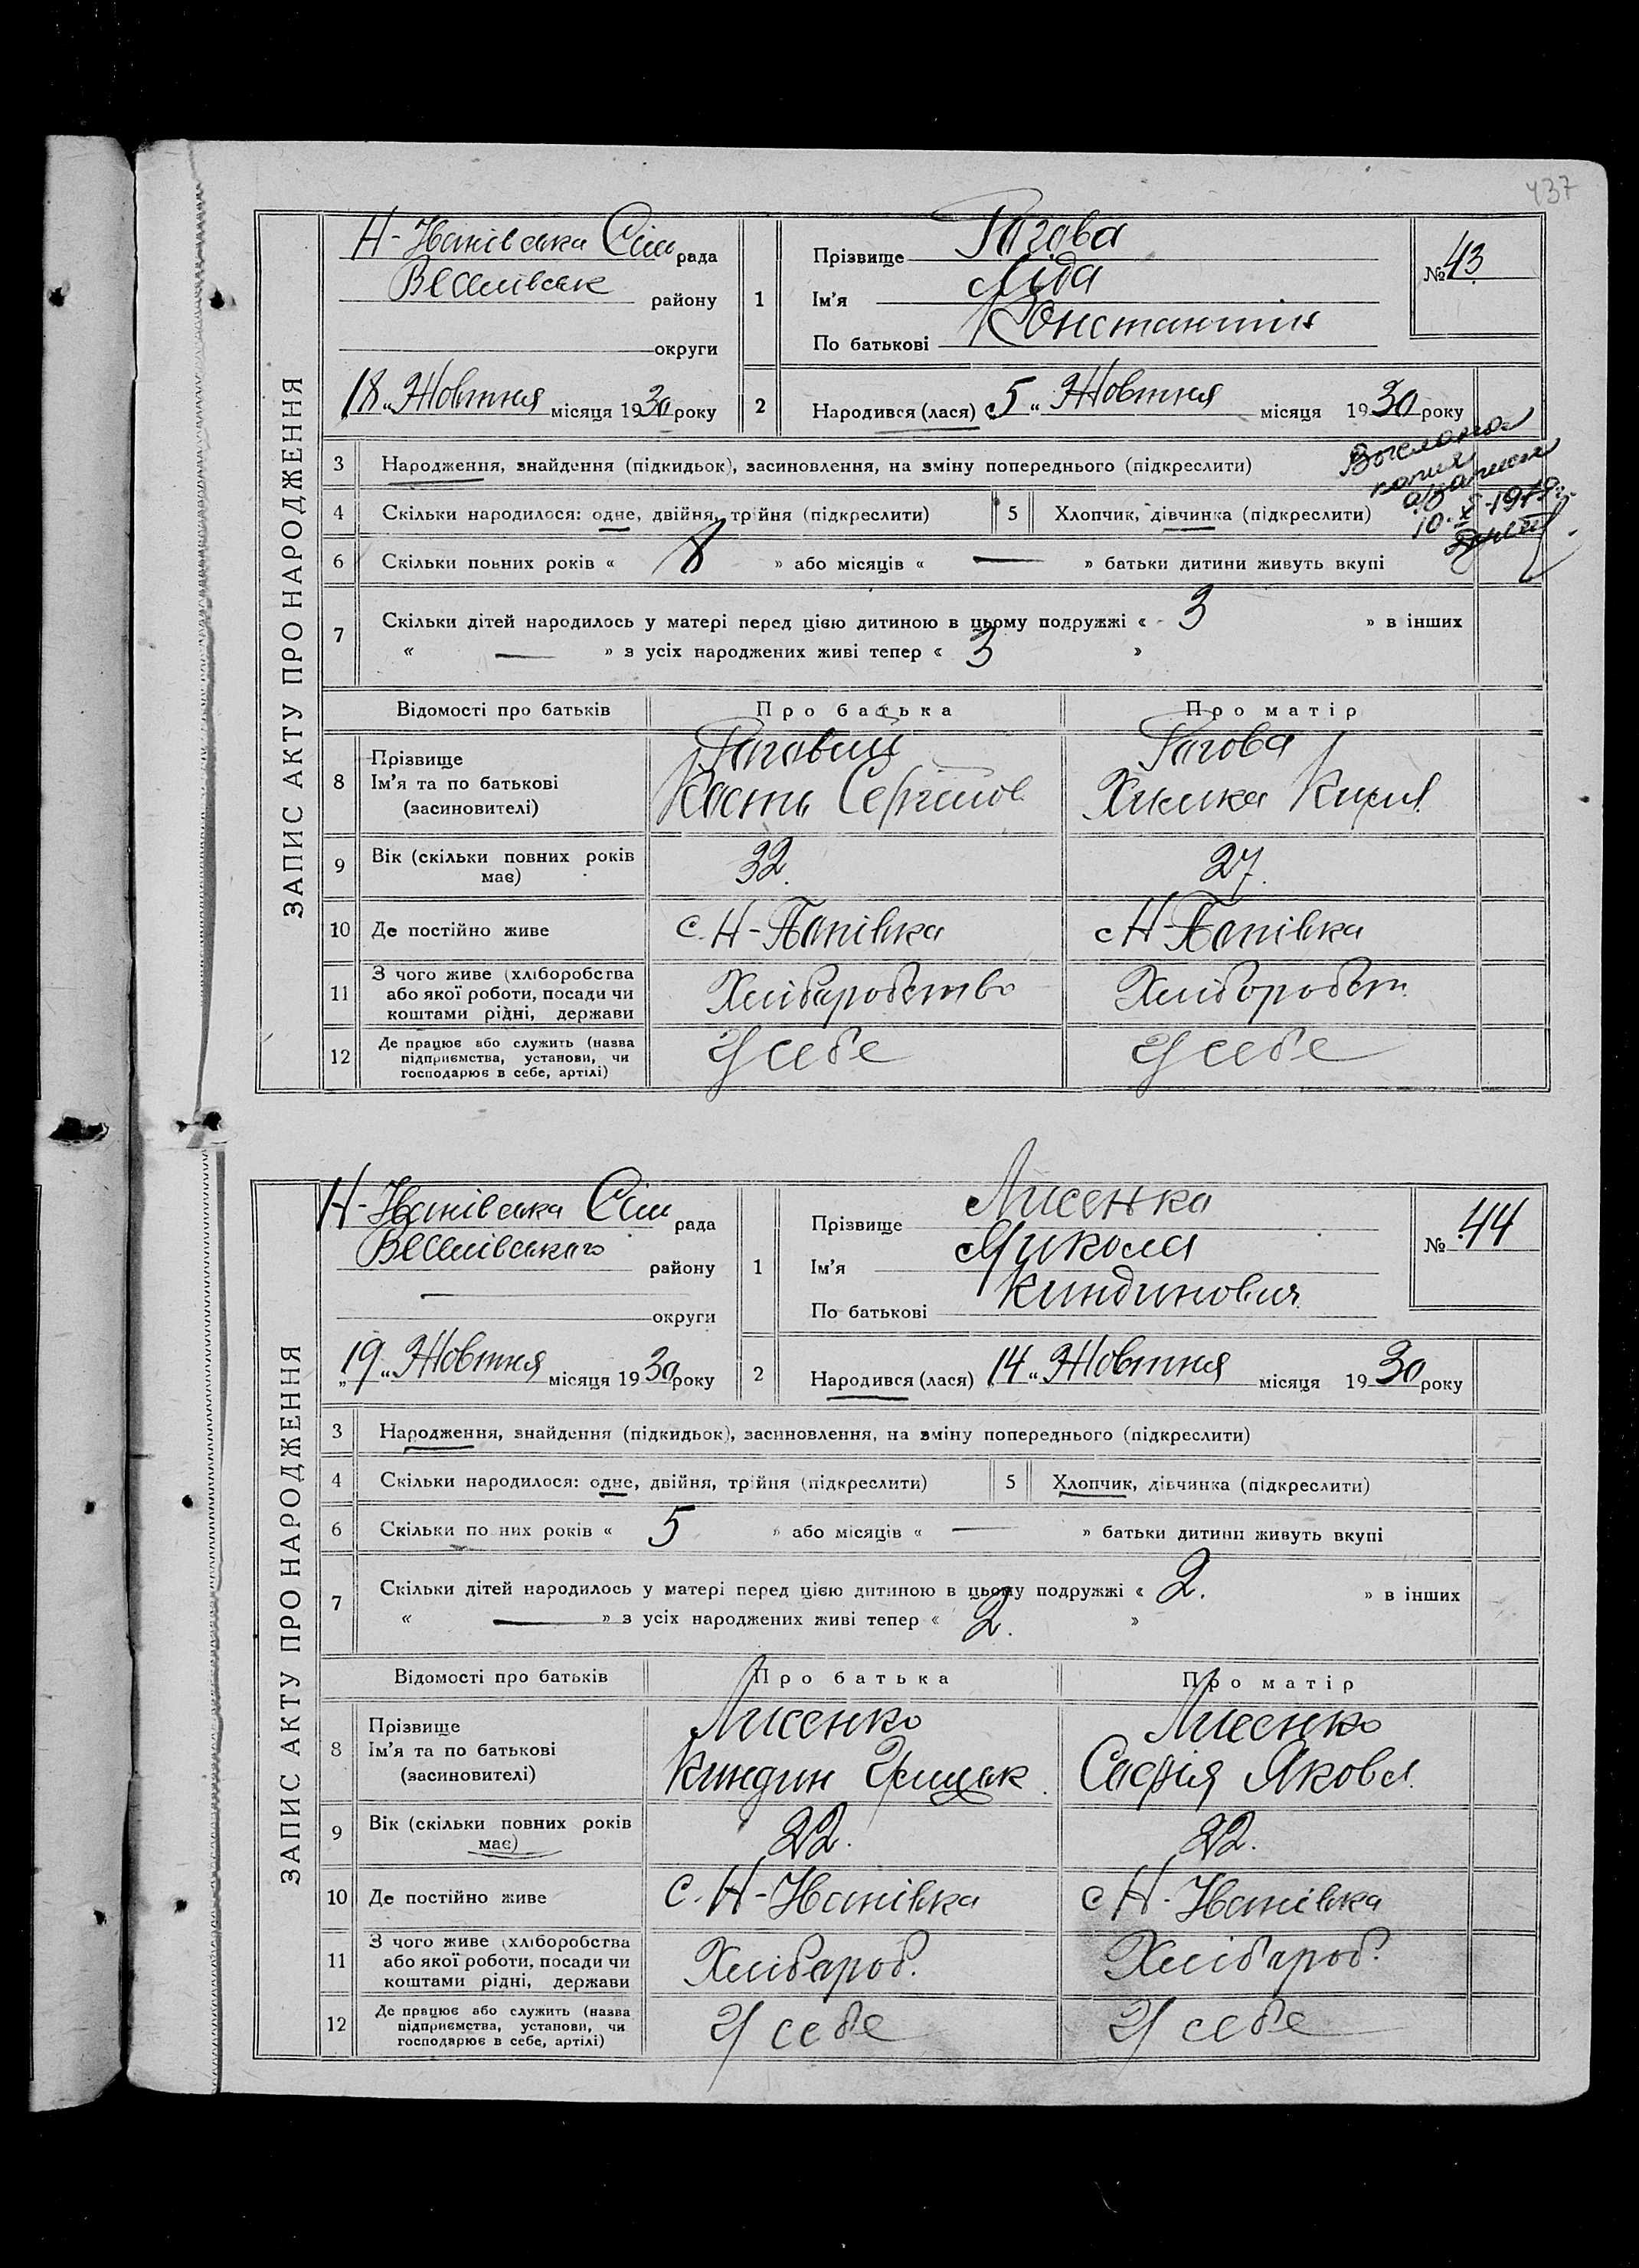 437
ЗАПИС АКТУ ПРО НАРОДЖЕННЯ
Н-Іванівська Сіль рада
Веселівськ району
округи
18 „ Жовтня місяця 1930 року
1 Прізвище Рогова
Ім’я Ліда
По батькові Константин
№ 43
2 Народився (лася) 5 „ Жовтня місяця 1930 року
3 Народження, знайдення (підкидьок), засиновлення, на зміну попереднього (підкреслити)
4 Скільки народилося: одне, двійня, трійня (підкреслити) 5 Хлопчик, дівчинка (підкреслити)
Выслана
копия
10. X-19
6 Скільки повних років « 8 » або місяців « — » батьки дитини живуть вкупі
7 Скільки дітей народилось у матері перед цією дитиною в цьому подружжі « 3 » в інших
« — » з усіх народжених живі тепер « 3 »
Відомості про батьків Про батька Про матір
8 Прізвище
Ім’я та по батькові
(засиновителі)
Рогова
Кость Сергійов Химка Кирил
9 Вік (скільки повних років має) 32. 27.
10 Де постійно живе с. Н- с Н-
11 З чого живе (хліборобства
або якої роботи, посади чи
коштами рідні, держави
Хліборобство Хлібороб
12 Де працює або служить (назва
підприємства, установи, чи
господарює в себе, артілі)
У себе У себе
ЗАПИС АКТУ ПРО НАРОДЖЕННЯ
Н-Іванівська Сіль рада
Веселівського району
— округи
„19„ Жовтня місяця 1930 року
1 Прізвище Лисенко
Ім’я Микола
По батькові Киндинович
№ 44
2 Народився (лася) 14 „ Жовтня місяця 1930 року
3 Народження, знайдення (підкидьок), засиновлення, на зміну попереднього (підкреслити)
4 Скільки народилося: одне, двійня, трійня (підкреслити) 5 Хлопчик, дівчинка (підкреслити)
6 Скільки по них років « 5 » або місяців « — » батьки дитини живуть вкупі
7 Скільки дітей народилось у матері перед цією дитиною в цьому подружжі « 2. » в інших
« — » з усіх народжених живі тепер « 2. »
Відомості про батьків Про батька Про матір
8 Прізвище
Ім’я та по батькові
(засиновителі)
Лисенко Лисенко
Киндин Грицьк. Софія Яковл.
9 Вік (скільки повних років має) 22. 22.
10 Де постійно живе с. Н-Іванівка с Н-Іванівка
11 З чого живе (хліборобства
або якої роботи, посади чи
коштами рідні, держави
Хлібороб. Хлібороб.
12 Де працює або служить (назва
підприємства, установи, чи
господарює в себе, артілі)
У себе У себе